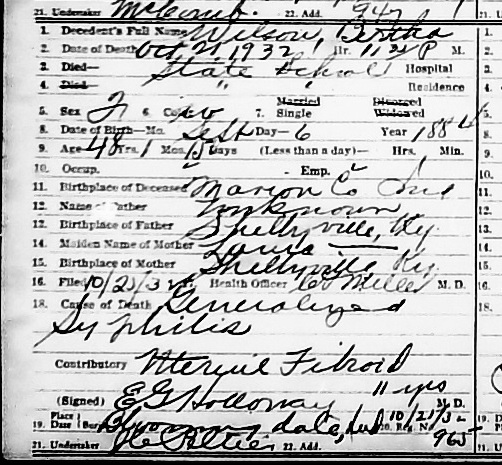 21. Undertaker McComb. 22. Add. 947
1. Decedent's Full Name Wilson, Bertha
2. Date of Death Oct 21, 1932 Hr. 11 22 P M.
3. Died— State School Hospital
4. Died— " " Residence
5. Sex F 6. Color w 7. Married Single Divorced Widowed
8. Date of Birth—Mo. Sept Day—6 Year 1884
9. Age 48 Yrs. 1 Mos. 15 Days (Less than a day)— Hrs. Min.
10. Occup. Emp.
11. Birthplace of Deceased Marion Co Ind
12. Name of Father Unknown
13. Birthplace of Father Shellyville, Ky.
14. Maiden Name of Mother Lama ——
15. Birthplace of Mother Shellyville, Ky.
16. Filed 10/23/32 Health Officer Miller M. D.
18. Cause of Death Generalized
Syphilis
Contributory Uterine Fibroid
11 yrs
(Signed) E G Holloway M. D.
19. Place Date 10/21/32
21. Undertaker 22. Add. 965